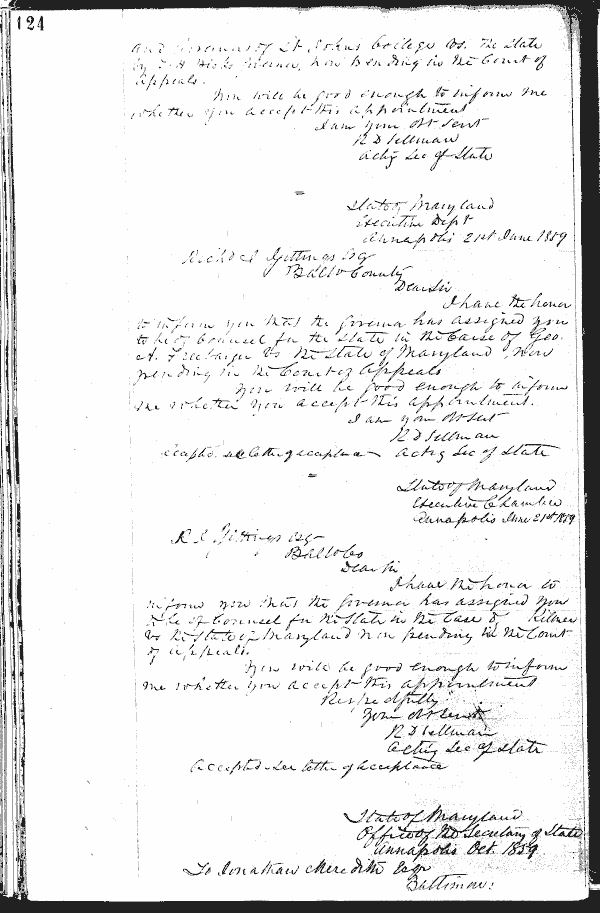 124
and Governors of St Johns College vs. The State
by T. H. Hicks Governor, now Pending in the Court of
Appeals.
You will be good enough to inform me
whether you accept this appointment
I am your Obt Sevt
R D Sellman
actg Sec of State
State of Maryland
Executive Dept
Annapolis 21st June 1859
Gittings Esq
Balto County
Dear Sir
I have the honor
to inform you that the Governor has assigned you
to be of Counsel for the State in the Cause of Geo.
A. vs the State of Maryland, now
pending in the Court of Appeals
You will be good enough to inform
me whether you accept this appointment.
I am your Obt Sevt
R D Sellman
accepted. see letter of acceptance actg Sec of State
State of Maryland
Executive Chamber
Annapolis June 21st 1859
R. J. Gittings Esq
Balto Co
Dear Sir
I have the honor to
inform you that the Governor has assigned you
to be of Counsel for the State in the Case of
vs the State of Maryland now pending in the Court
of Appeals.
You will be good enough to inform
me whether you accept this appointment
Respectfully
Your Obt Sevt
R D Sellman
acting Sec of State
Accepted - see letter of acceptance
State of Maryland
Office of the Secretary of State
Annapolis Oct. 1859
To Jonathan Meredith Esqr
Baltimore: